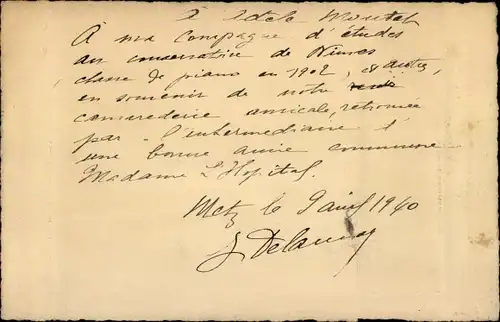 à Adèle Moutet
À ma compagne d'études
au conservatoire de Nîmes
classe de piano en 1902, et autres,
en souvenir de notre
camaraderie amicale, retrouvée
par l'intermédiaire d'
une bonne amie commune
Madame L'Hopital.
Metz le 9 avril 1940
J. Delaunay